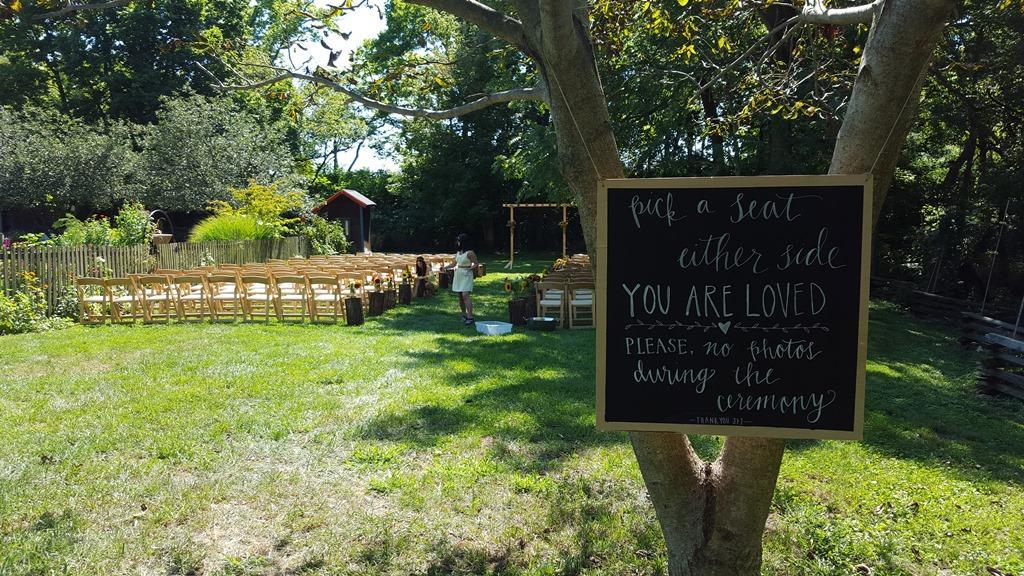 pick a seat
either side
YOU ARE LOVED
PLEASE, no photos
during the
ceremony
—THANK YOU